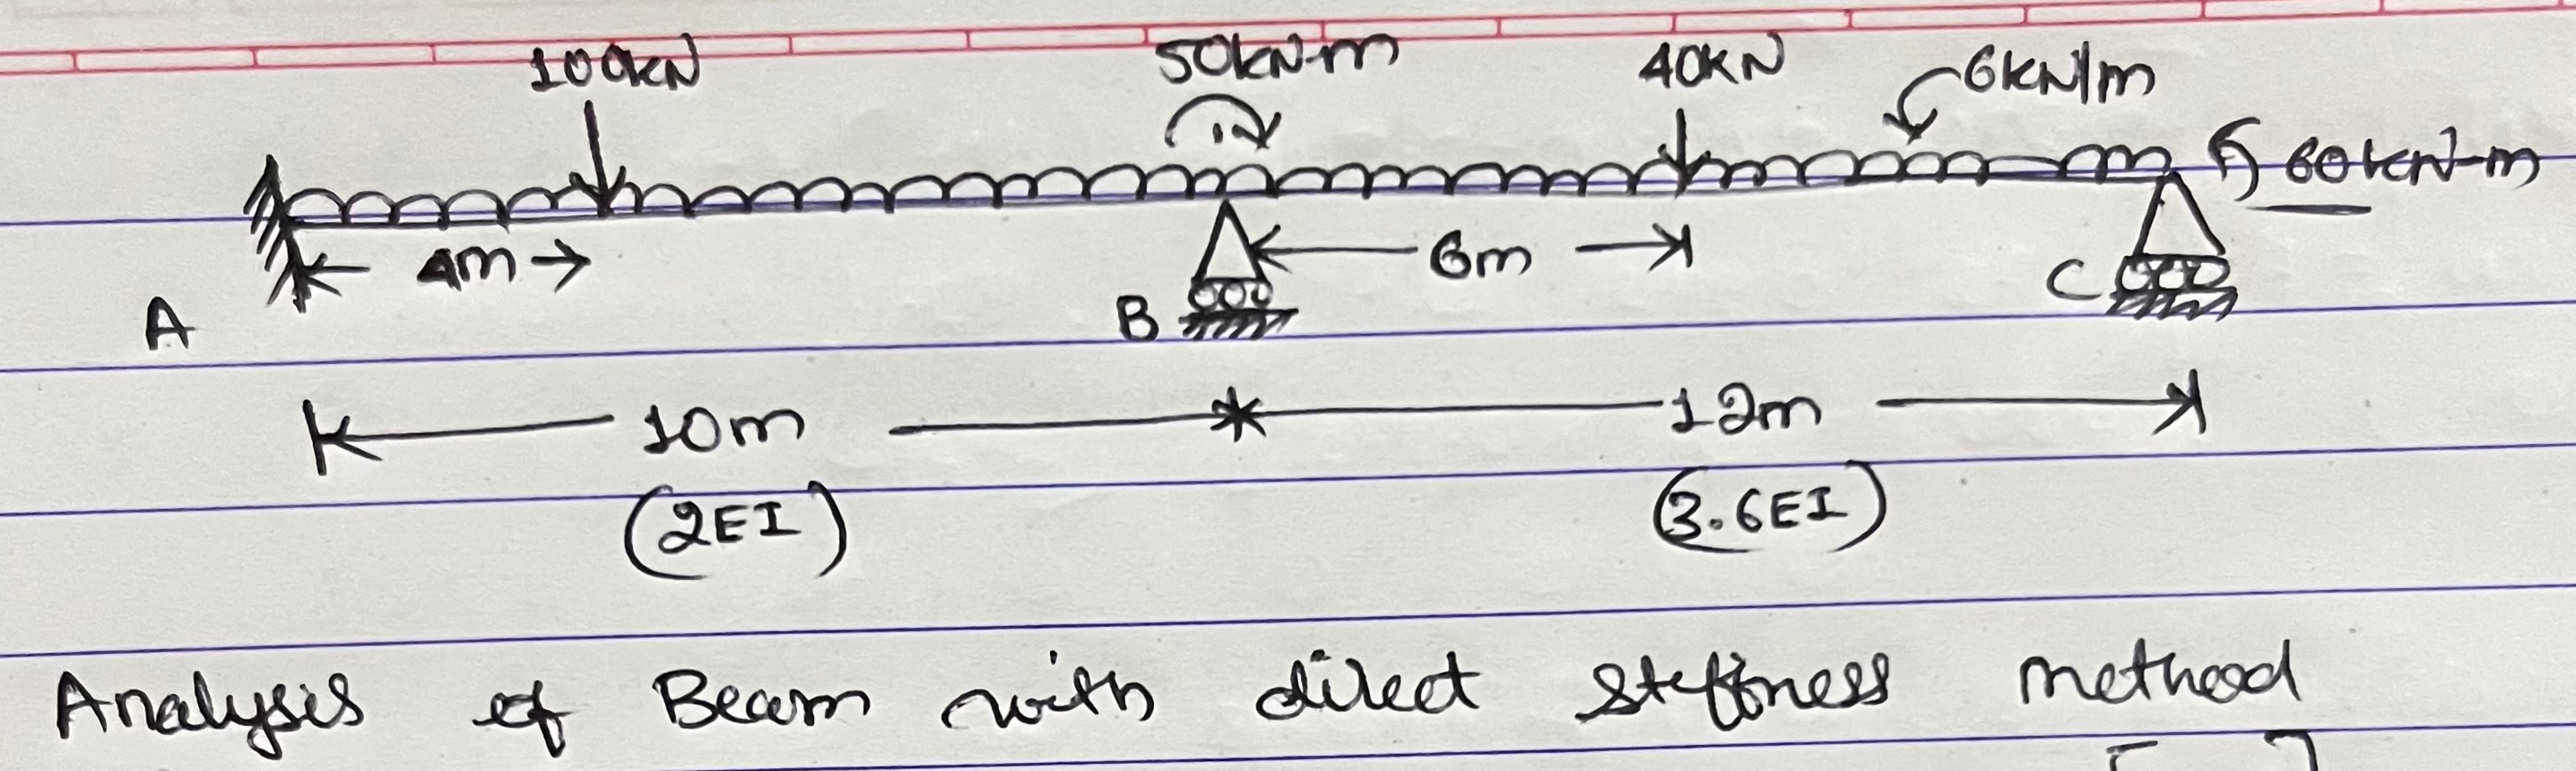 100kN 50kN-m 40KN 6kN/m
60kN-m
4m 6m
A B C
10m 12m
(2EI) (3.6EI)
Analysis of Beam with direct stiffness method